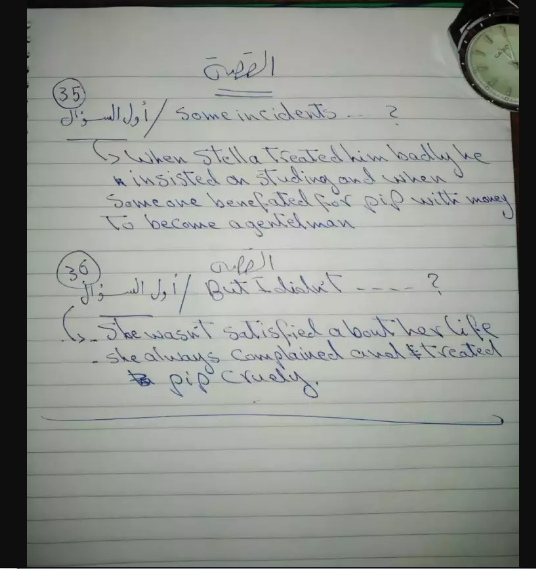 القصة
35
أول السؤال / Some incidents ... ?
When Stella treated him badly he
insisted on studing and when
someone benefated for pip with money
to become a gentelman
القصة
36
أول السؤال / But I didn't ---- ?
- She wasn't satisfied about her life
- she always complained and treated
pip cruely.